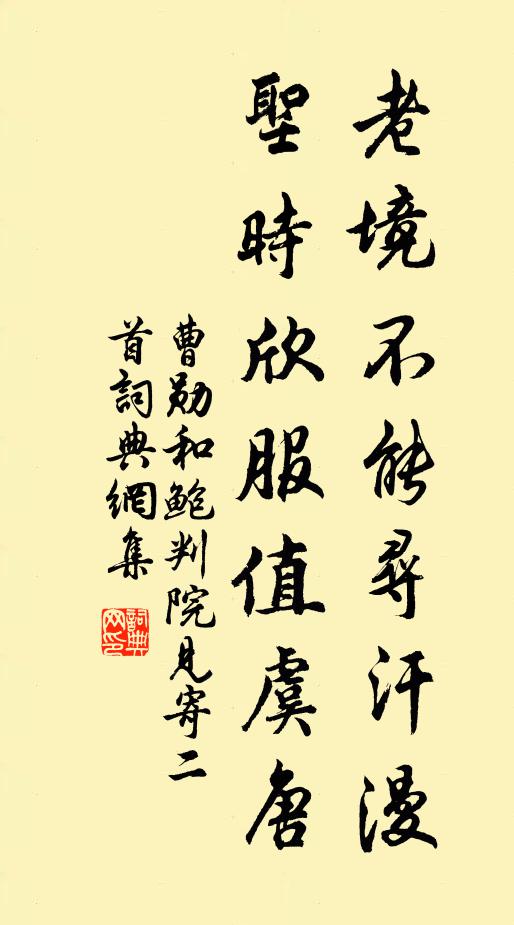 老境不能尋汗漫
聖時欣服值虞唐
曹勛和鮑判院見寄二
首詞典網集
詞典
网印